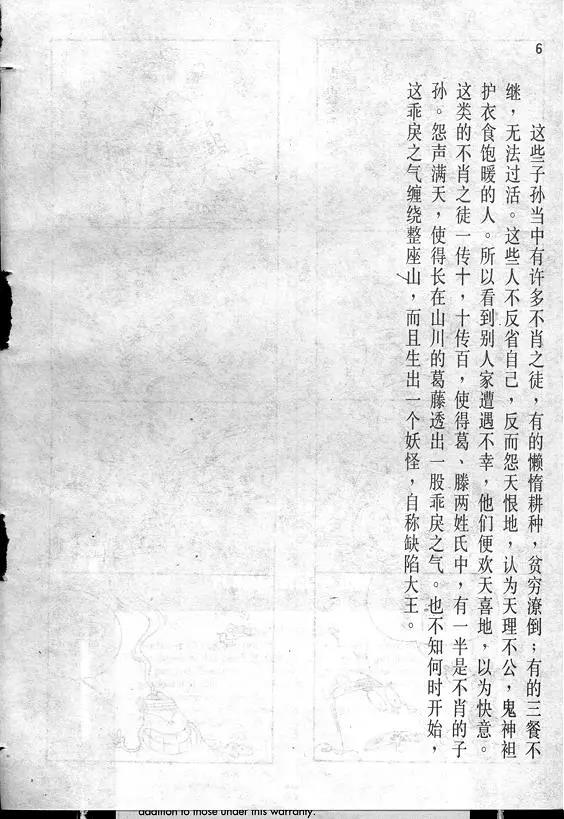 6
这些子孙当中有许多不肖之徒，有的懒惰耕种，贫穷潦倒；有的三餐不
继，无法过活。这些人不反省自己，反而怨天恨地，认为天理不公，鬼神袒
护衣食饱暖的人。所以看到别人家遭遇不幸，他们便欢天喜地，以为快意。
这类的不肖之徒一传十，十传百，使得葛、滕两姓氏中，有一半是不肖的子
孙。怨声满天，使得长在山川的葛藤透出一股乖戾之气。也不知何时开始，
这乖戾之气缠绕整座山，而且生出一个妖怪，自称缺陷大王。
addition to those under this warranty.